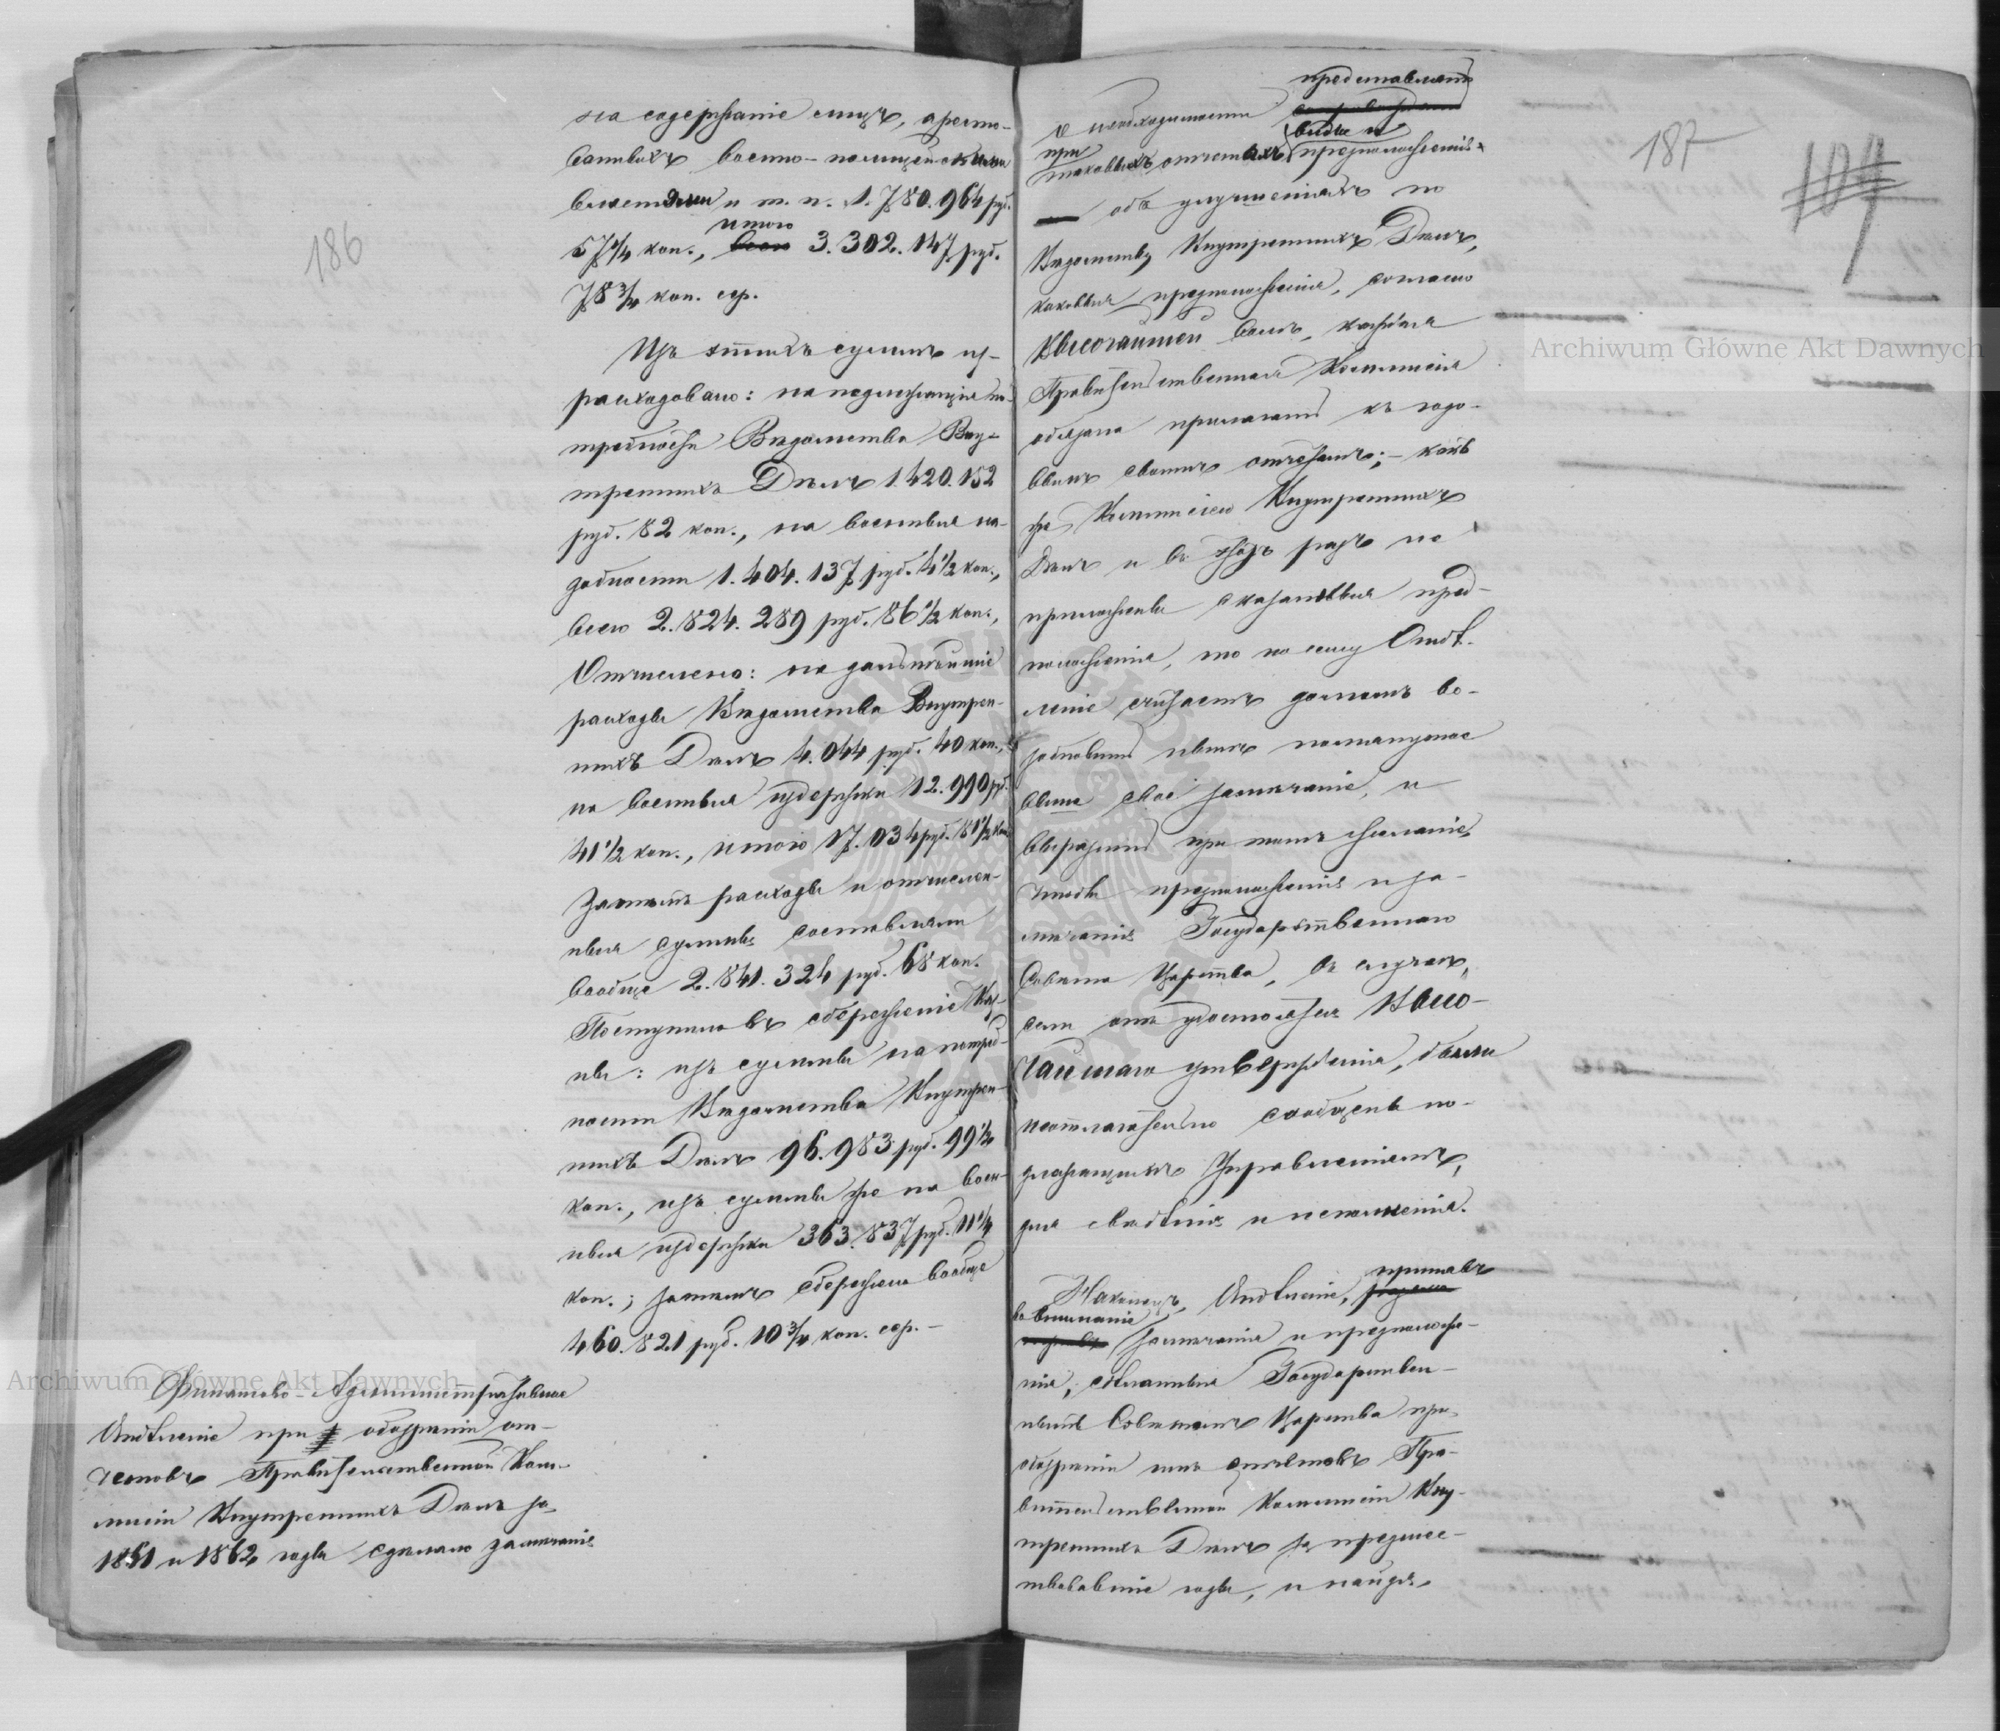 186
на содержаніе лицъ, аресто-
ванныхъ военно-полицейскими
властями и т. п. 1.780.964 руб.
57 1/4 коп., итого
всего 3.302.147 руб.
78 3/4 коп. сер.
Изъ этихъ суммъ из-
расходовано: на надлежащія по-
требности Вѣдомства Вну-
треннихъ Дѣлъ 1.420.152
руб. 82 коп., на военныя на-
добности 1.404.137 руб. 4 1/2 коп.,
всего 2.824.289 руб. 86 1/2 коп.,
Отчислено: на дальнѣйшіе
расходы Вѣдомства Внутрен-
нихъ Дѣлъ 4.044 руб. 40 коп., и
на военныя издержки 12.990 руб.
41 1/2 коп., итого 17.034 руб. 81 1/2 коп.
Затѣмъ расходы и отчислен-
ныя суммы составляли
вообще 2.841.324 руб. 68 коп.
Поступило въ сбереженіе Каз-
ны: изъ суммы на потреб-
ности Вѣдомства Внутрен-
нихъ Дѣлъ 96.983 руб. 99 1/2
коп., изъ суммы же на воен-
ныя издержки 363.837 руб. 11 1/4
коп.; затѣмъ сбережено вообще
460.821 руб. 10 3/4 коп. сер.–
Финансово-Административное
Отдѣленіе при обозрѣніи от-
четовъ Правительственной Ком-
мисіи Внутреннихъ Дѣлъ за
1861 и 1862 годы сдѣлало замѣчаніе
187
104
представлять
о необходимости
при виды и
таковыхъ отчетахъ предположенія
объ улучшеніяхъ по
Вѣдомству Внутреннихъ Дѣлъ,
каковыя предположенія, согласно
Высочайшей волѣ, каждая
Правительственная Коммисія
обязана прилагать къ годо-
вымъ своимъ отчетамъ;– какъ
же Коммисіею Внутреннихъ
Дѣлъ и въ этотъ разъ не
приложены сказанныя пред-
положенія, то по сему Отдѣ-
леніе считаетъ долгомъ во-
зобновить нынѣ помянутое
свое замѣчаніе, и
выразить при томъ желаніе,
чтобы предположенія и за-
мѣчанія Государственнаго
Совѣта Царства, въ случаѣ,
если они удостоятся Высо-
чайшаго утвержденія, были
неотлагательно сообщены по-
длежащимъ Управленіямъ,
для свѣдѣнія и исполненія.
принявъ
Наконецъ, Отдѣленіе,
во вниманіе
замѣчанія и предположе-
нія, сдѣланныя Государствен-
нымъ Совѣтомъ Царства при
обозрѣніи имъ отчетовъ Пра-
вительственной Коммисіи Вну-
треннихъ Дѣлъ за предшес-
твовавшіе годы, и найдя,
Archiwum Główne Akt Dawnych
Archiwum Główne Akt Dawnych